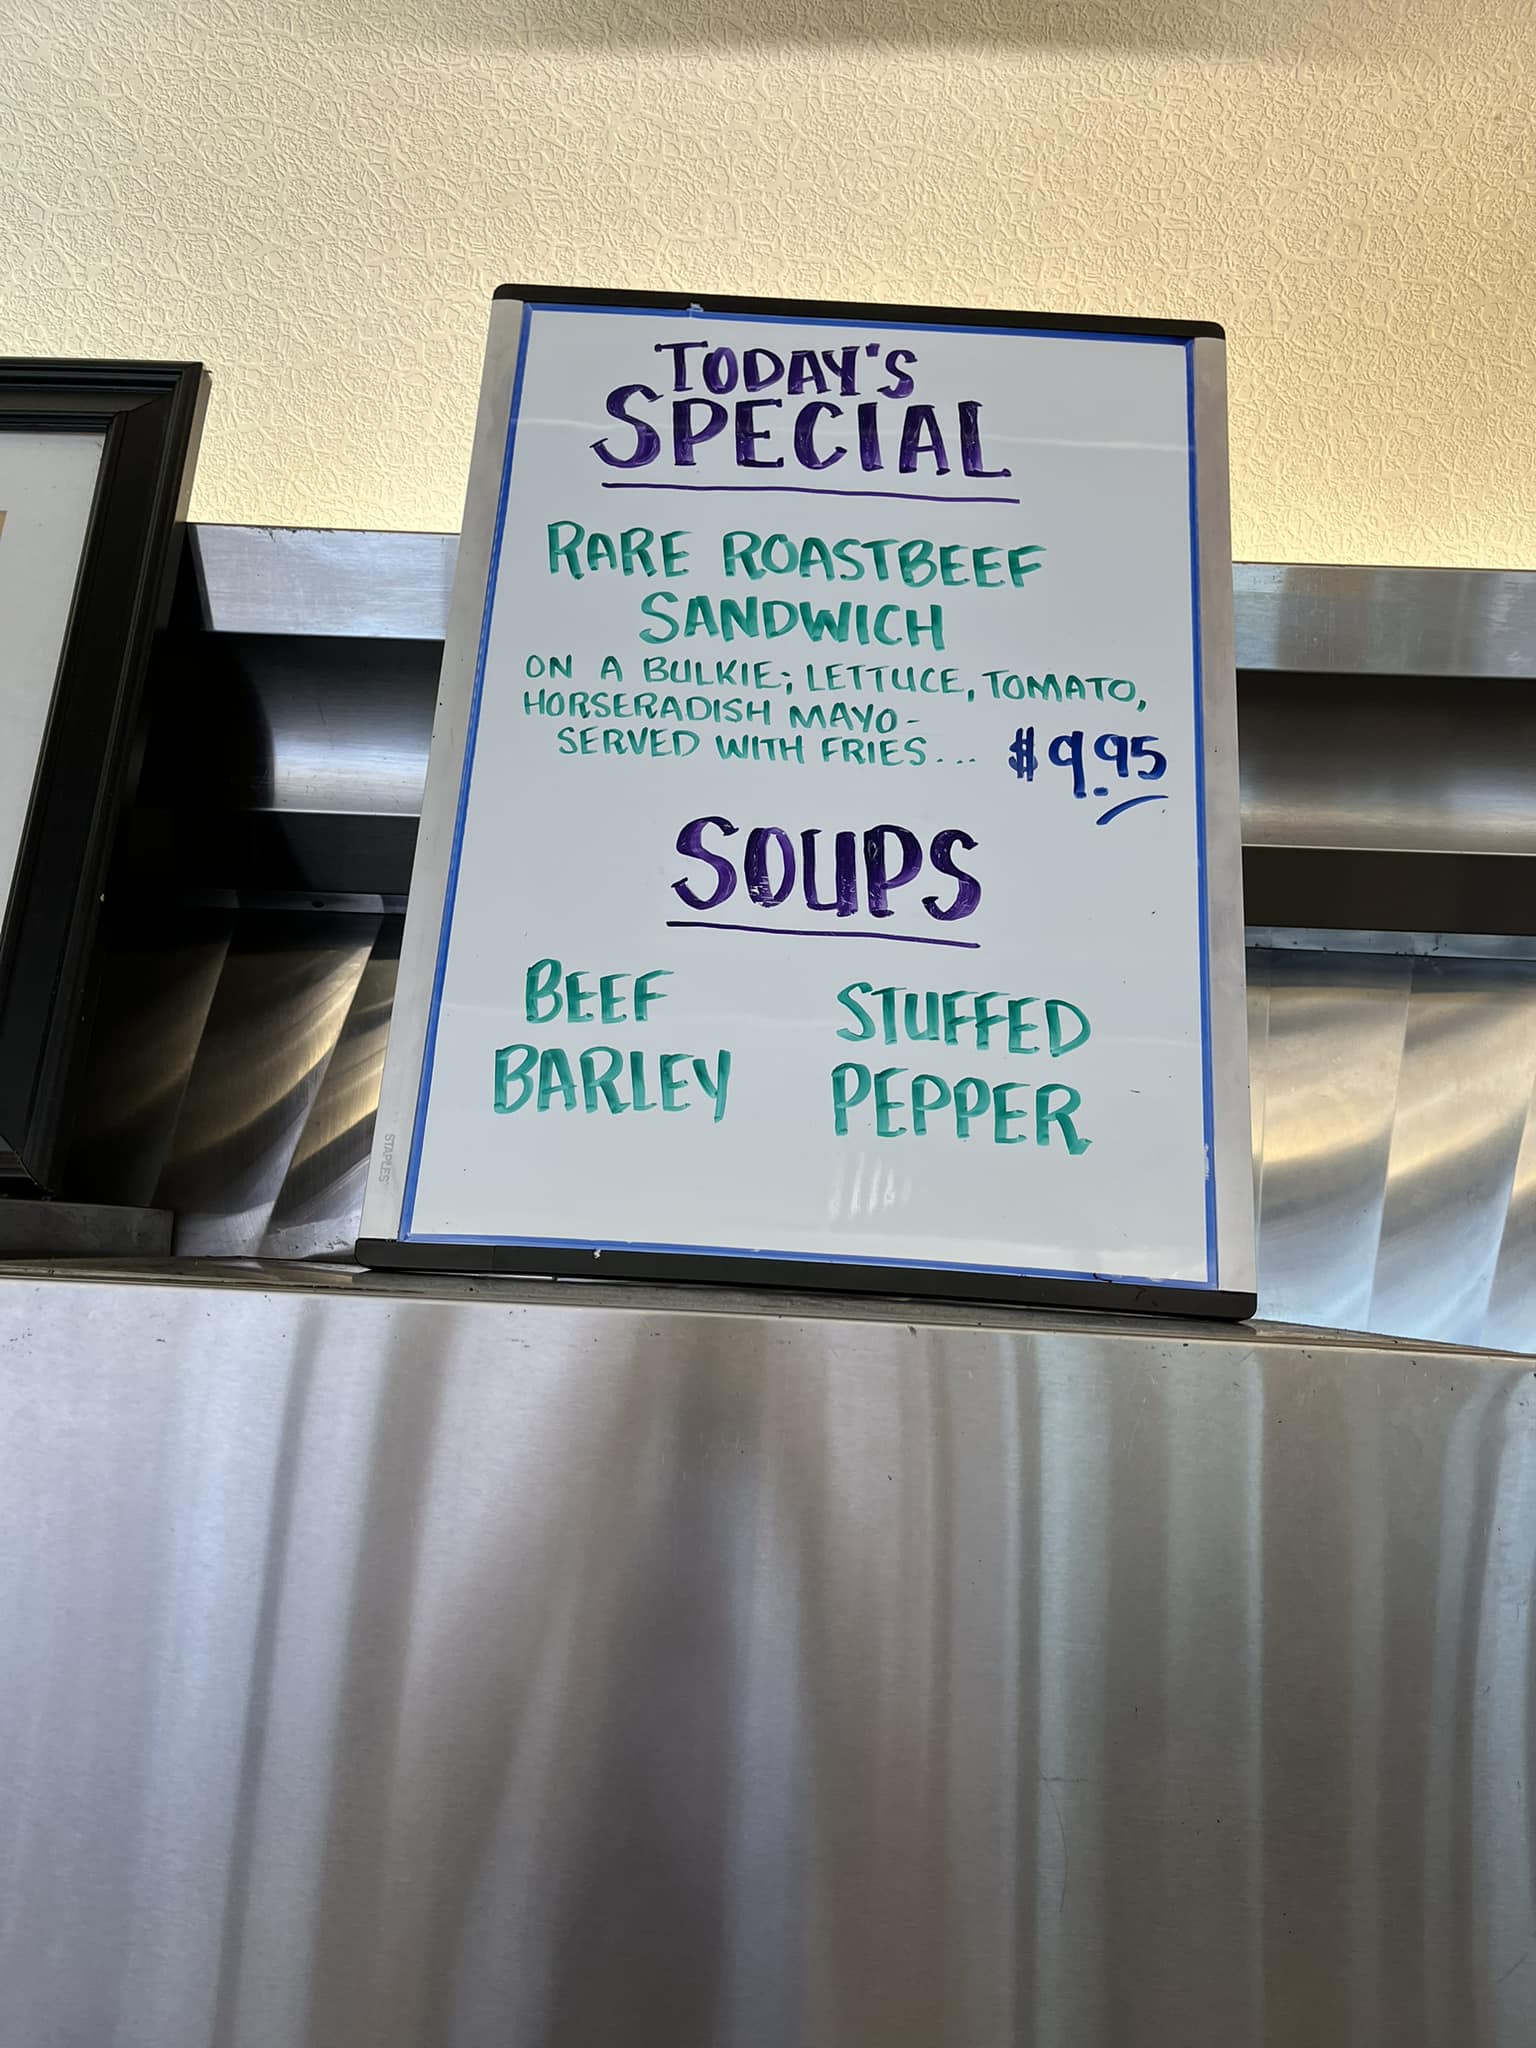 TODAY'S
SPECIAL
RARE ROASTBEEF
SANDWICH
ON A BULKIE; LETTUCE, TOMATO,
HORSERADISH MAYO-
SERVED WITH FRIES... $9.95
SOUPS
BEEF
BARLEY
STUFFED
PEPPER
STAPLES